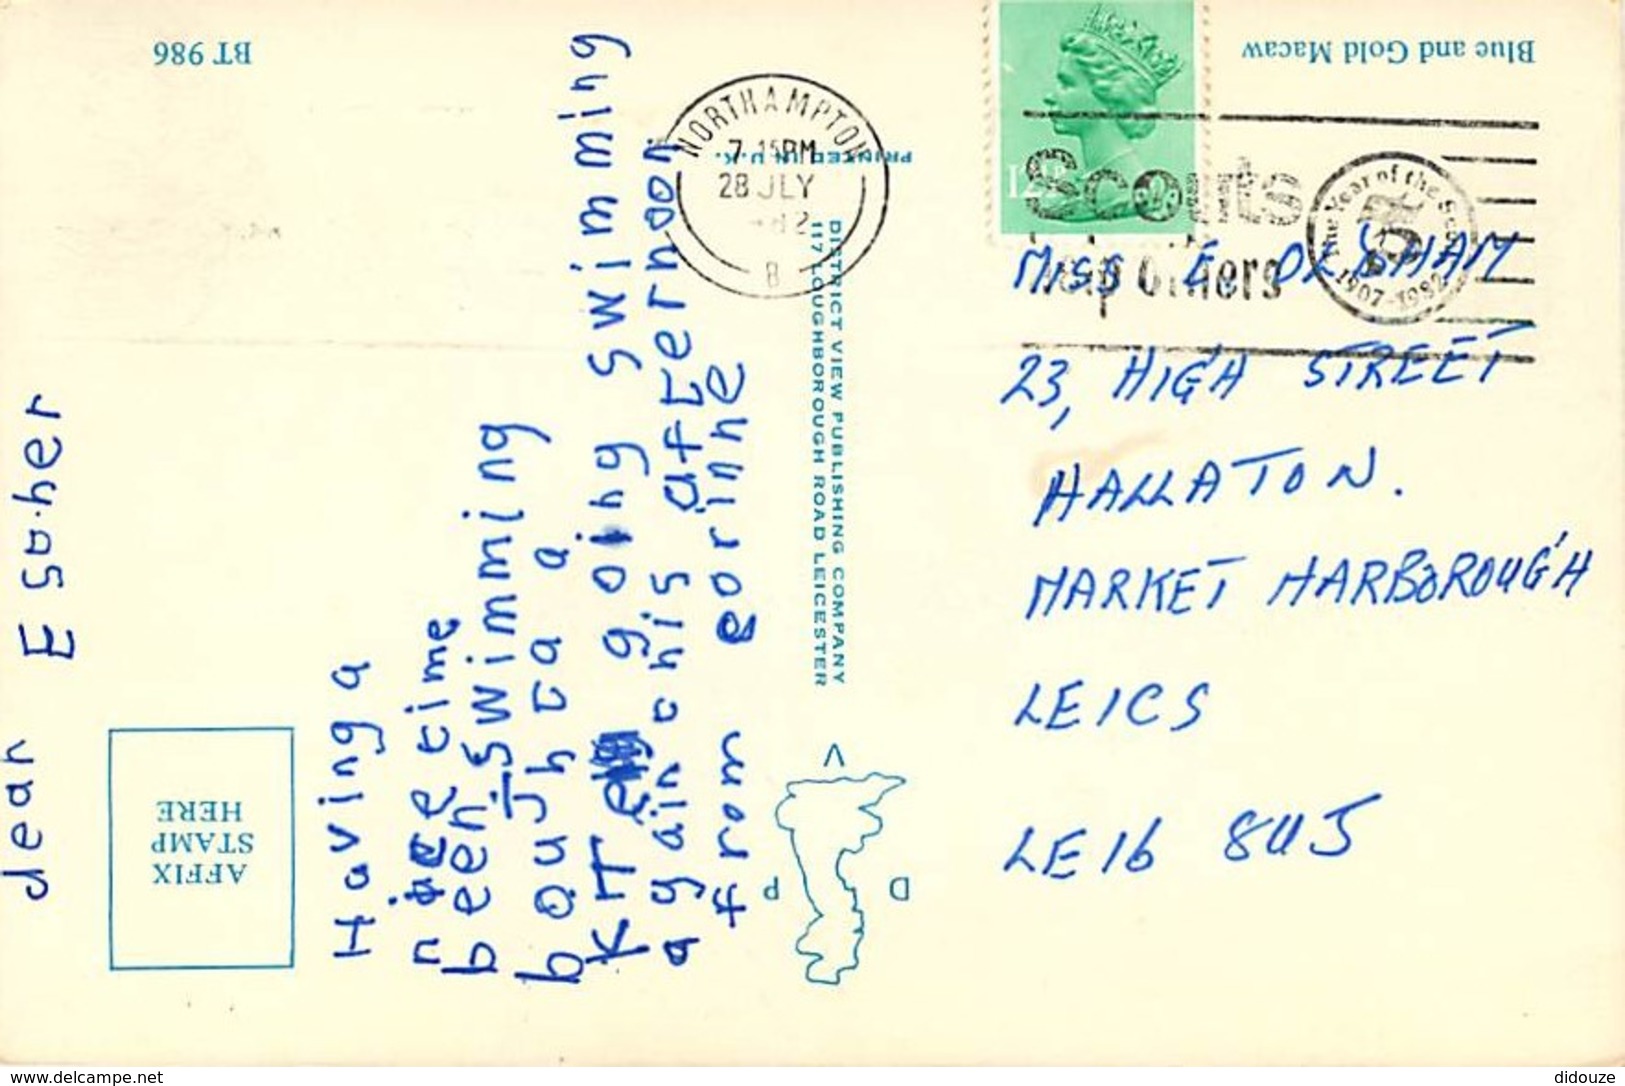 BT 986
Blue and Gold Macaw
AFFIX
STAMP
HERE
PRINTED IN U.K.
DISTRICT VIEW PUBLISHING COMPANY
117 LOUGHBOROUGH ROAD LEICESTER
D V P
NORTHAMPTON
7 15PM
28 JLY
B
12
Scouts
help others
The Year of the Scout
1907-1982
dear
Having a
nice time
been swimming
going swimming
this afternoon
from corinne
MISS E OLDHAM
23, HIGH STREET
HALLATON.
MARKET HARBOROUGH
LEICS
LE16 8UJ
www.delcampe.net
didouze